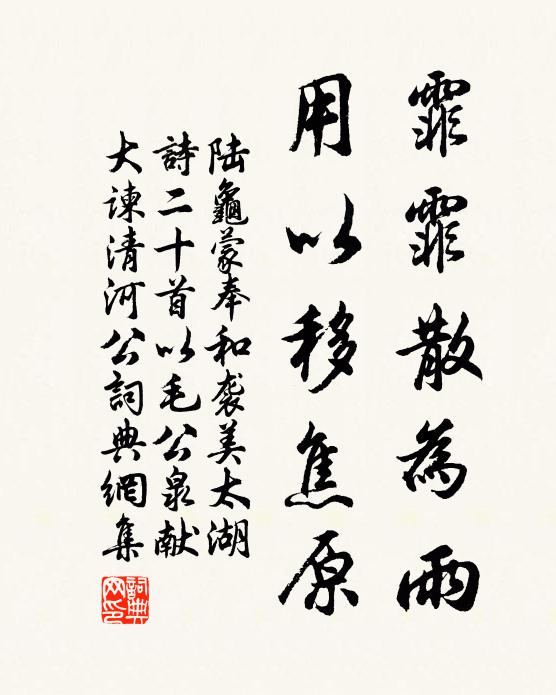 霏霏散為雨
用以移焦原
陆龜蒙奉和袭美太湖
詩二十首以毛公泉献
大諫清河公詞典網集
詞典網印